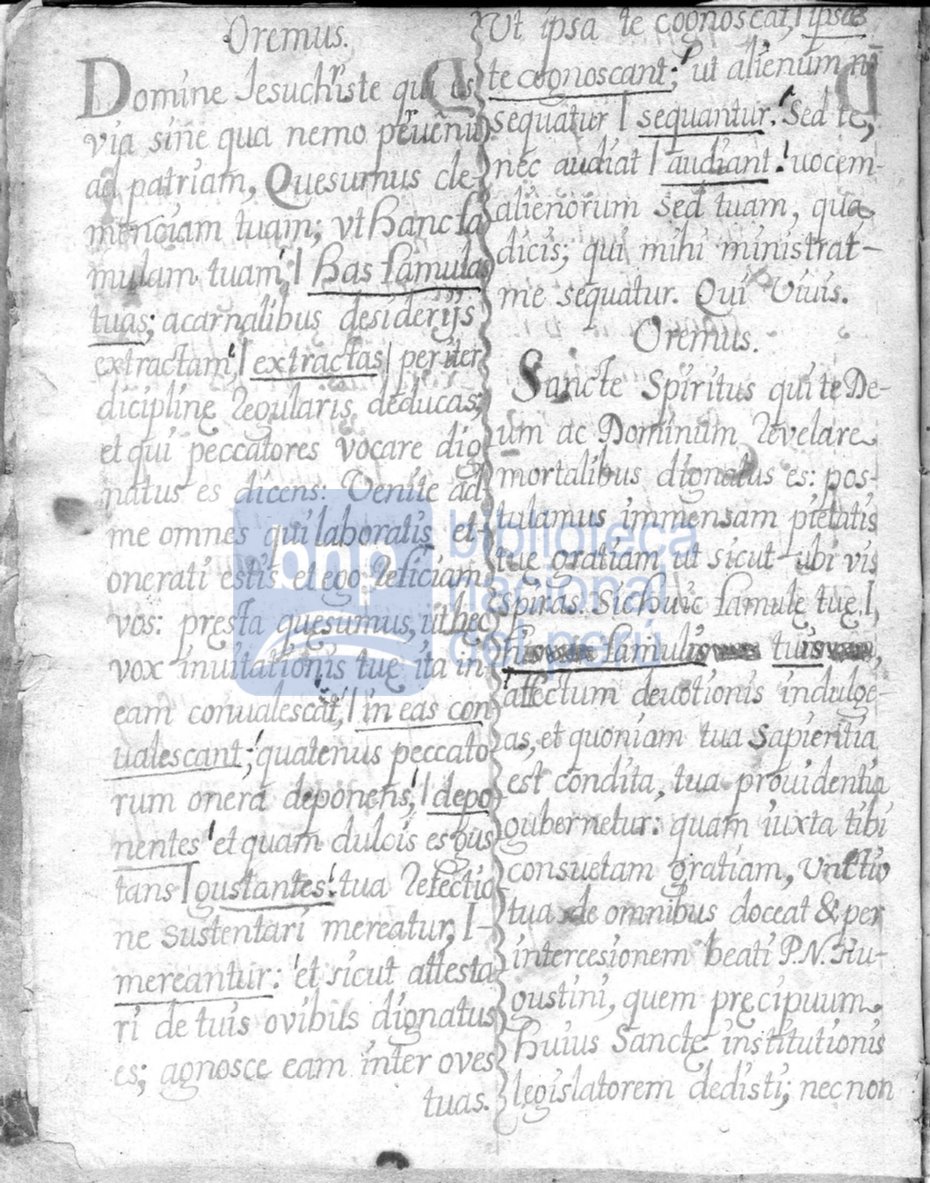 Oremus.
Domine Jesuchriste qui es
via sine qua nemo peruenit
ad patriam, Quesumus cle-
menciam tuam; vt hanc fa
mulam tuam, | has famulas
tuas; acarnalibus desiderijs
extractam, | extractas | per iter
diciplinę Regularis deducas;
et qui peccatores vocare dig
natus es dicens: Venite ad
me omnes qui laboratis et
onerati estis et ego Reficiam
vos: pręsta quęsumus, ut hec
vox inuitationis tuę ita in
eam conualescat, | in eas con
ualescant; quatenus peccato
rum onera deponens, | depo
nentes et quam dulcis es gus
tans | gustantes! tua Refectio
ne sustentari mereatur, |-
mereantur: et sicut attesta
ri de tuis ovibus dignatus
es; agnosce eam inter oves
tuas.
Ut ipsa te cognoscat, | ipsas
te cognoscant; ut alienum ni
sequatur | sequantur. Sed te,
nec audiat | audiant! uocem-
alienorum sed tuam, qua
dicis; qui mihi ministrat-
me sequatur. Qui Viuis.
Oremus.
Sancte Spiritus qui te De-
um ac Dominum Revelare
mortalibus dignatus es: pos-
tulamus immensam pietatis
tuę gratiam ut sicut ubi vis
espiras. Sic huic famulę tuę, |
famulis tuis,
affectum deuotionis indulge-
as, et quoniam tua Sapientia
est condita, tua prouidentia
gubernetur: quam iuxta tibi
consuetam gratiam, Unctio
tua de omnibus doceat & per
intercesionem beati P. N. Au-
gustini, quem pręcipuum
huius Sanctę institutionis
legislatorem dedisti; nec non
bnp
biblioteca
nacional
del perú